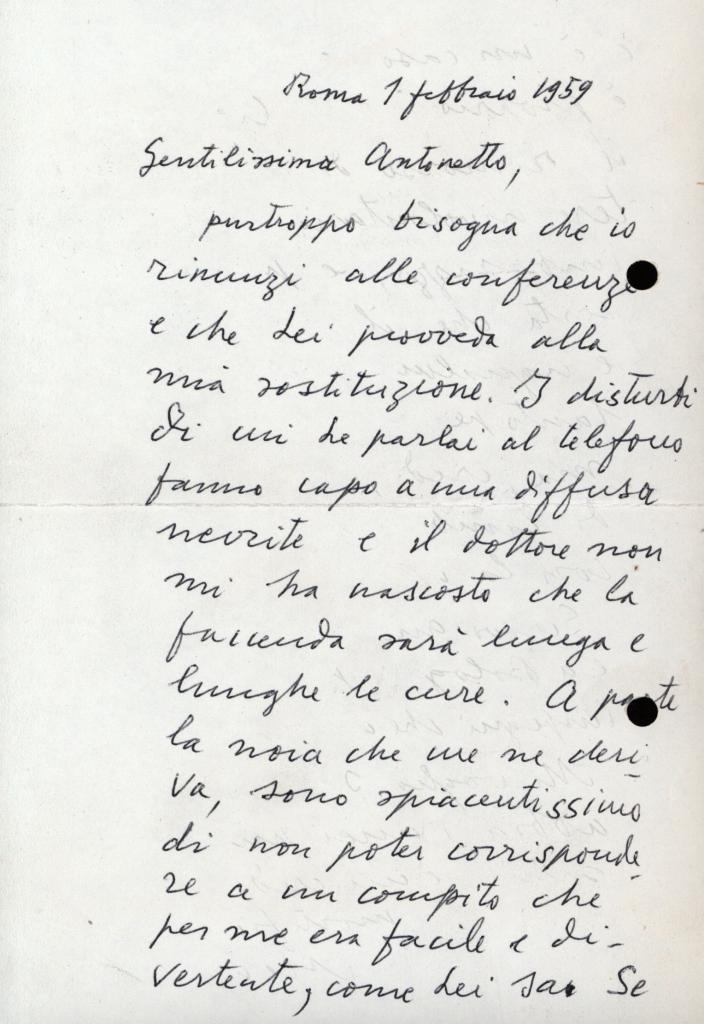 Roma 1 febbraio 1959
Gentilissimo Antonetto,
purtroppo bisogna che io
rinunzi alle conferenze
e che Lei provveda alla
mia sostituzione. I disturbi
di cui Le parlai al telefono
fanno capo a una diffusa
nevrite e il dottore non
mi ha nascosto che la
faccenda sarà lunga e
lunghe le cure. A parte
la noia che me ne deri-
va, sono spiacentissimo
di non poter corrisponde-
re a un compito che
per me era facile e di-
vertente, come Lei sa. Se